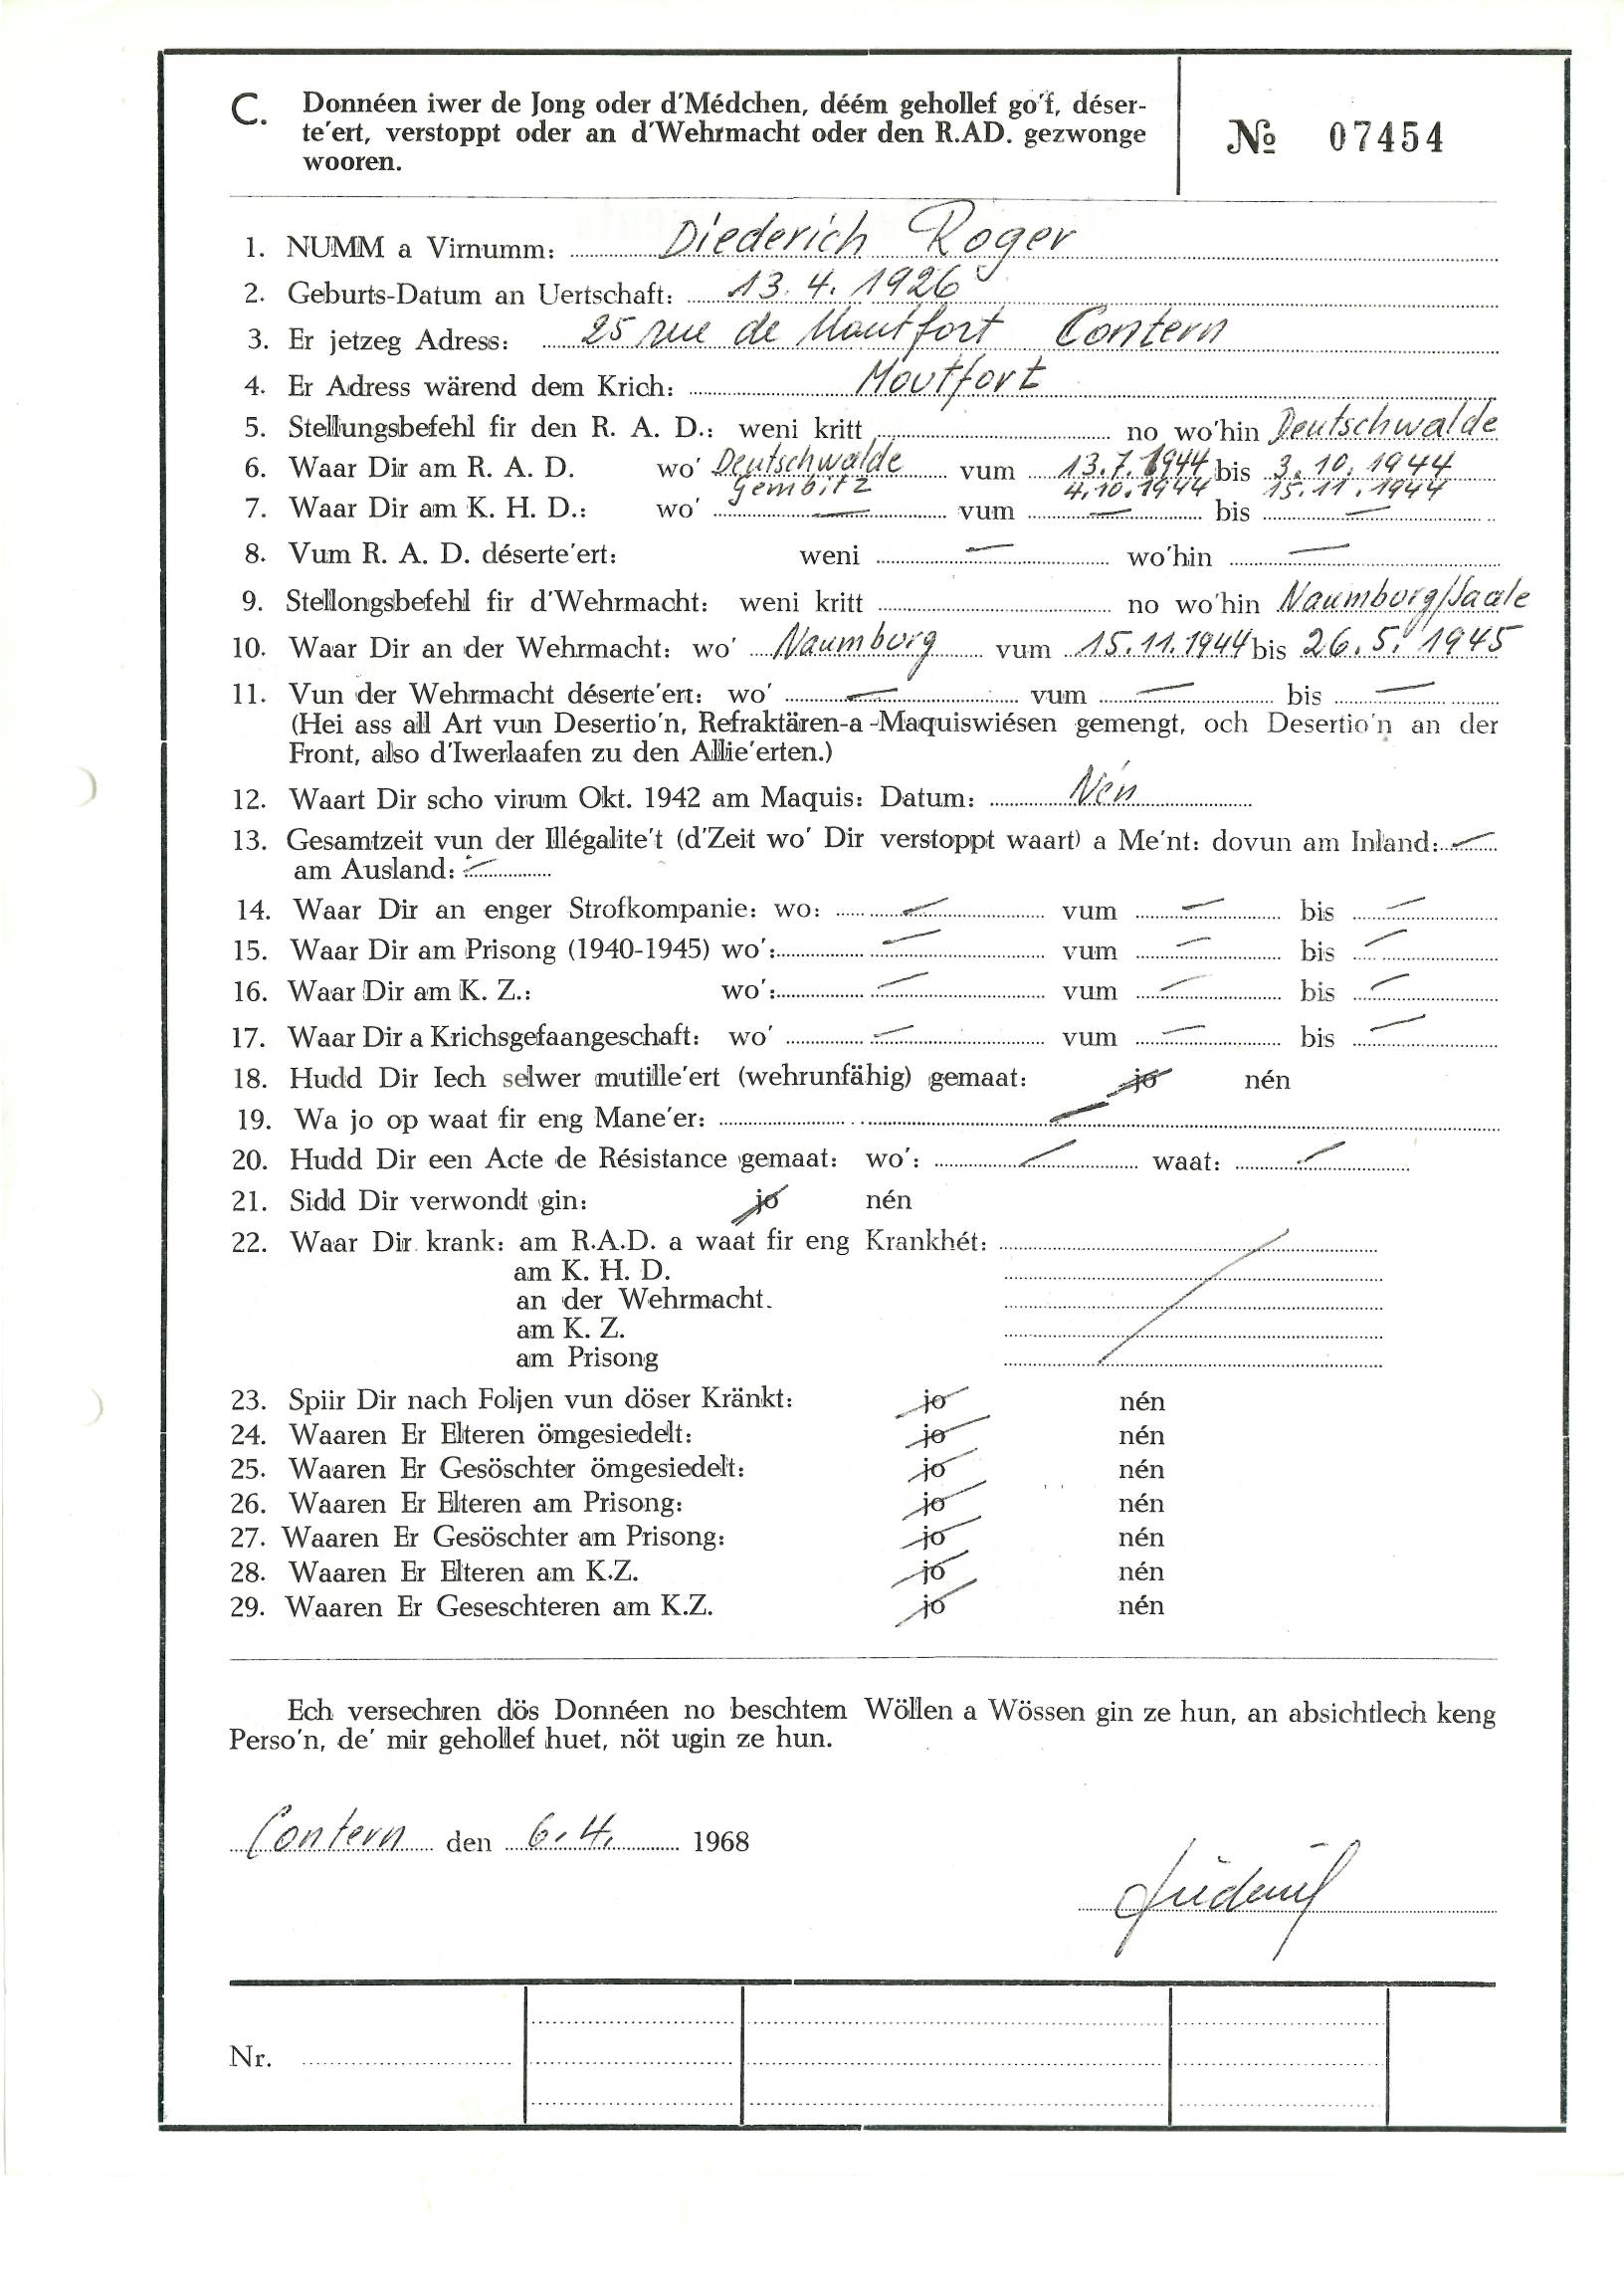 C. Donnéen iwer de Jong oder d'Médchen, déém gehollef go'f, déser-
te'ert, verstoppt oder an d'Wehrmacht oder den R.AD. gezwonge
wooren.
№ 07454
1. NUMM a Virnumm: Diederich Roger
2. Geburts-Datum an Uertschaft: 13.4.1926
3. Er jetzeg Adress: 25 rue de Moutfort Contern
4. Er Adress wärend dem Krich: Moutfort
5. Stellungsbefehl fir den R. A. D.: weni kritt no wo'hin Deutschwalde
6. Waar Dir am R. A. D. wo' Deutschwalde vum 13.7.1944 bis 3.10.1944
Gembitz 4.10.1944 15.11.1944
7. Waar Dir am K. H. D.: wo' — vum — bis —
8. Vum R. A. D. déserte'ert: weni — wo'hin —
9. Stellongsbefehl fir d'Wehrmacht: weni kritt no wo'hin Naumburg/Saale
10. Waar Dir an der Wehrmacht: wo' Naumburg vum 15.11.1944 bis 26.5.1945
11. Vun der Wehrmacht déserte'ert: wo' — vum — bis —
(Hei ass all Art vun Desertio'n, Refraktären-a-Maquiswiésen gemengt, och Desertio'n an der
Front, also d'Iwerlaafen zu den Allie'erten.)
12. Waart Dir scho virum Okt. 1942 am Maquis: Datum: Nén
13. Gesamtzeit vun der Illégalite't (d'Zeit wo' Dir verstoppt waart) a Me'nt: dovun am Inland: —
am Ausland: —
14. Waar Dir an enger Strofkompanie: wo: — vum — bis —
15. Waar Dir am Prisong (1940-1945) wo': — vum — bis —
16. Waar Dir am K. Z.: wo': — vum — bis —
17. Waar Dir a Krichsgefaangeschaft: wo' — vum — bis —
18. Hudd Dir Iech selwer mutille'ert (wehrunfähig) gemaat: jo nén
19. Wa jo op waat fir eng Mane'er: —
20. Hudd Dir een Acte de Résistance gemaat: wo': — waat: —
21. Sidd Dir verwondt gin: jo nén
22. Waar Dir krank: am R.A.D. a waat fir eng Krankhét:
am K. H. D.
an der Wehrmacht.
am K. Z.
am Prisong
23. Spiir Dir nach Foljen vun döser Kränkt: jo nén
24. Waaren Er Elteren ömgesiedelt: jo nén
25. Waaren Er Gesöschter ömgesiedelt: jo nén
26. Waaren Er Elteren am Prisong: jo nén
27. Waaren Er Gesöschter am Prisong: jo nén
28. Waaren Er Elteren am K.Z. jo nén
29. Waaren Er Geseschteren am K.Z. jo nén
Ech versechren dös Donnéen no beschtem Wöllen a Wössen gin ze hun, an absichtlech keng
Perso'n, de' mir gehollef huet, nöt ugin ze hun.
Contern den 6.4. 1968
Nr.